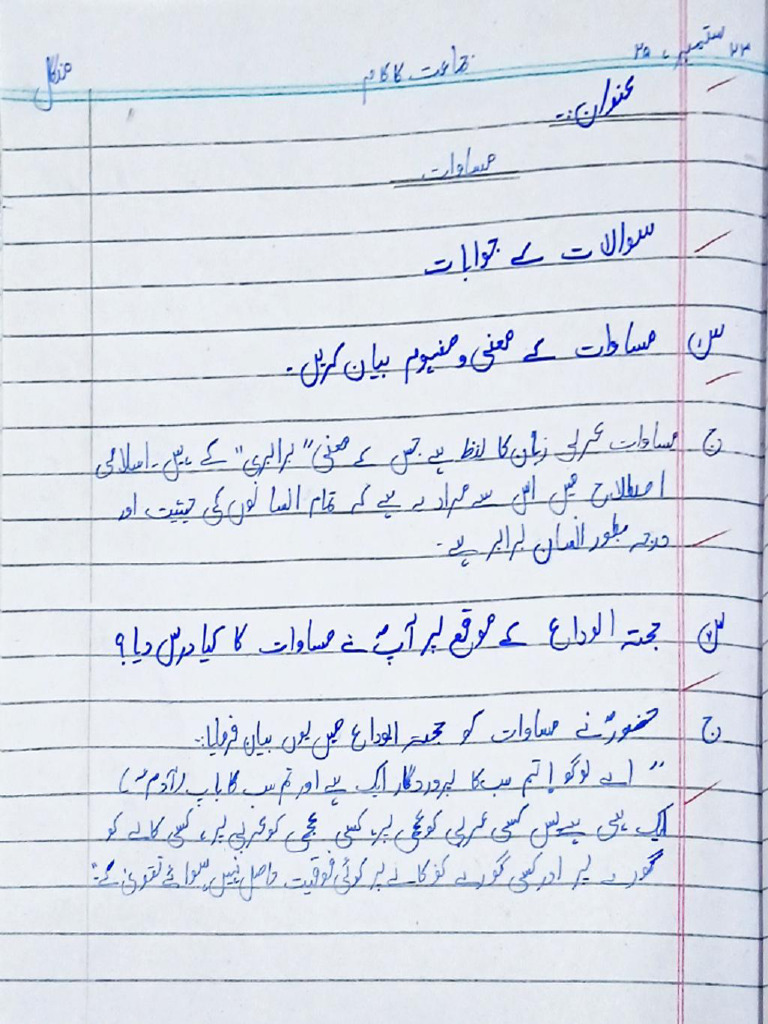 ۲۳ ستمبر، ۲۵ جماعت کا کام منگل
عنوان:-
مساوات
سوالات کے جوابات
س۱ مساوات کے معنی و مفہوم بیان کریں۔
ج مساوات عربی زبان کا لفظ ہے جس کے معنی "برابری" کے ہیں۔ اسلامی
اصطلاح میں اس سے مراد یہ ہے کہ تمام انسانوں کی حیثیت اور
درجہ بطور انسان برابر ہے۔
س۲ حجتہ الوداع کے موقع پر آپؐ نے مساوات کا کیا درس دیا؟
ج حضورؐ نے مساوات کو حجتہ الوداع میں یوں بیان فرمایا:-
"اے لوگو! تم سب کا پروردگار ایک ہے اور تم سب کا باپ (آدمؑ)
ایک ہی ہے پس کسی عربی کو عجمی پر، کسی عجمی کو عربی پر، کسی کالے کو
گورے پر اور کسی گورے کو کالے پر کوئی فوقیت حاصل نہیں سوائے تقویٰ کے۔"